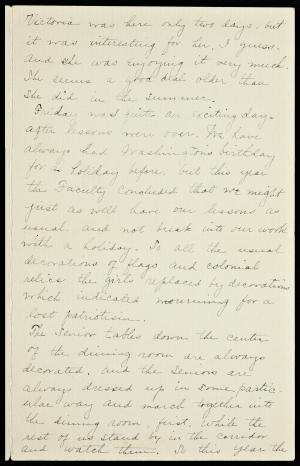 Victoria was here only two days, but
it was interesting for her, I guess.
And she was enjoying it very much.
She seems a good deal older than
she did in the summer.
Friday was quite an exciting day
after lessons were over. We have
always had Washington's birthday
for a holiday before, but this year
the Faculty concluded that we might
just as well have our lessons as
usual, and not break into our work
with a holiday. So all the usual
decorations of flags and colonial
relics the girls replaced by decorations
which indicated mourning for a
lost patriotism.
The Senior tables down the center
of the dining room are always
decorated, and the Seniors are
always dressed up in some partic-
ular way and march together into
the dining room, first, while the
rest of us stand by in the corridor
and watch them. So this year the